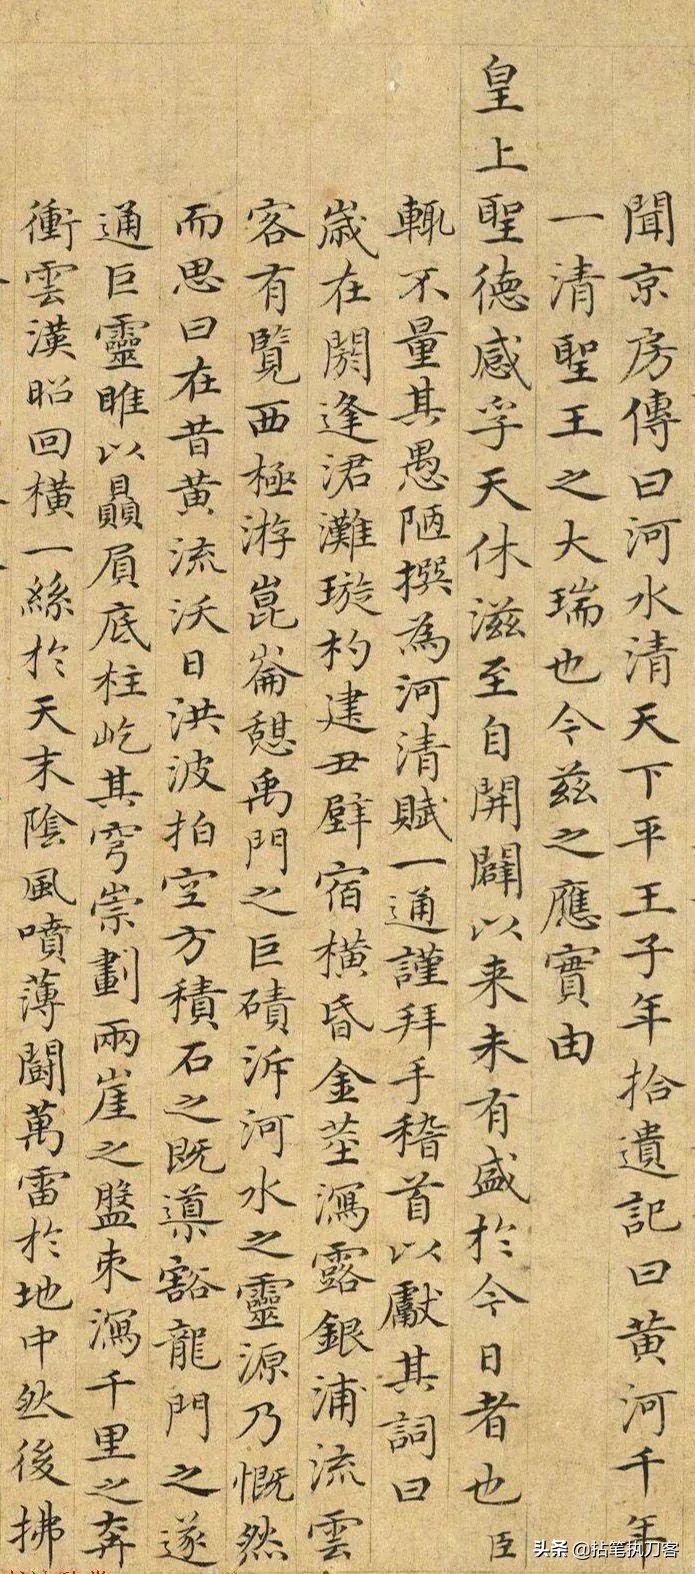 聞京房傳曰河水清天下平王子年拾遺記曰黄河千年
一清聖王之大瑞也今茲之應實由
皇上聖德感孚天休滋至自開闢以来未有盛於今日者也臣
輒不量其愚陋撰為河清賦一通謹拜手稽首以獻其詞曰
歲在閼逢涒灘璇杓建丑壁宿横昏金莖瀉露銀浦流雲
客有覽西極游崑崙憇禹門之巨磧泝河水之靈源乃慨然
而思曰在昔黄流沃日洪波拍空方積石之既導豁龍門之遂
通巨靈睢以贔屓底柱屹其穹崇劃兩崖之盤束瀉千里之奔
衝雲漢昭回横一絲於天末陰風噴薄鬪萬雷於地中然後拂
头条 @拈笔执刀客